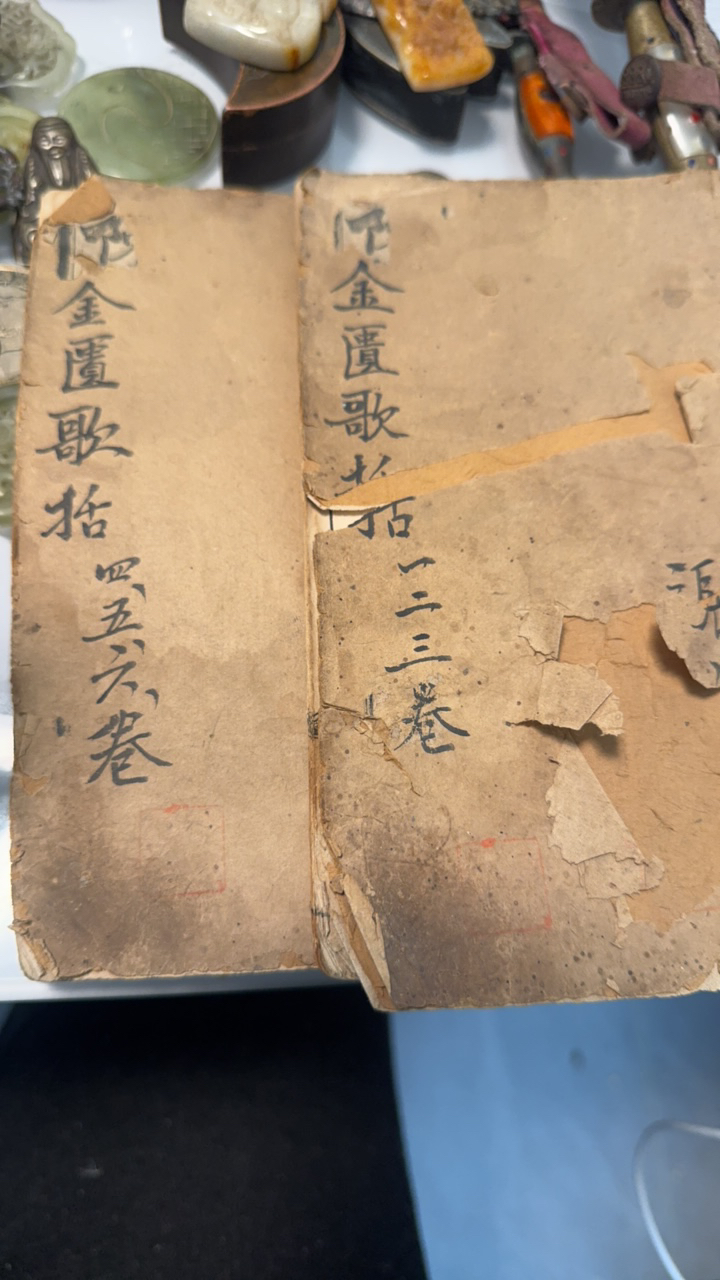 金匱歌括
一二三卷
金匱歌括
四、五、六、卷